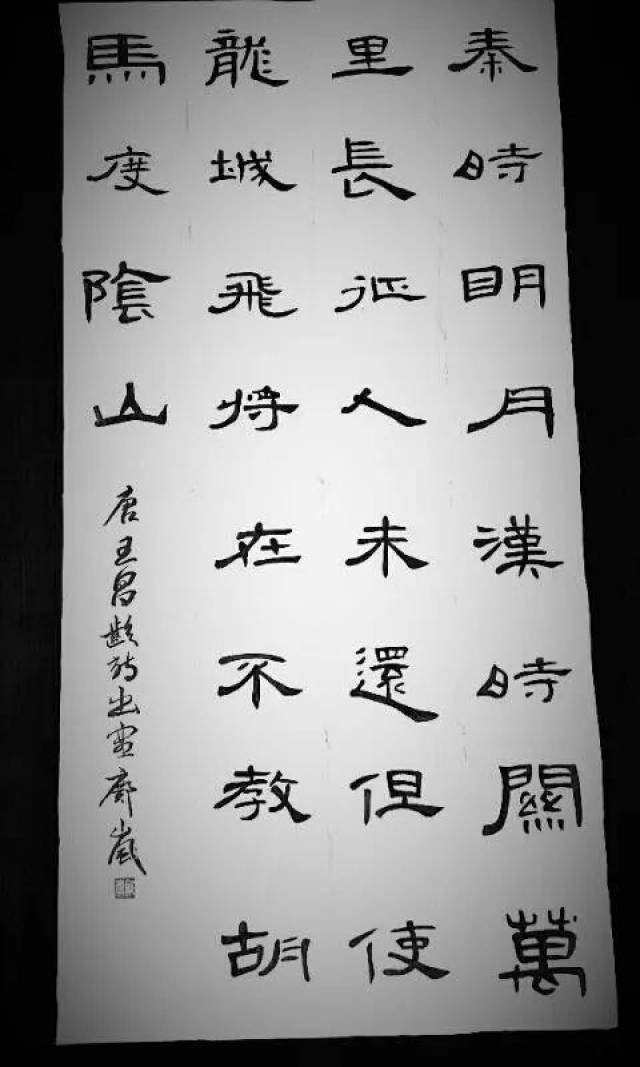 秦時明月漢時關萬
里長征人未還但使
龍城飛將在不教胡
馬度陰山
唐王昌齡詩出塞